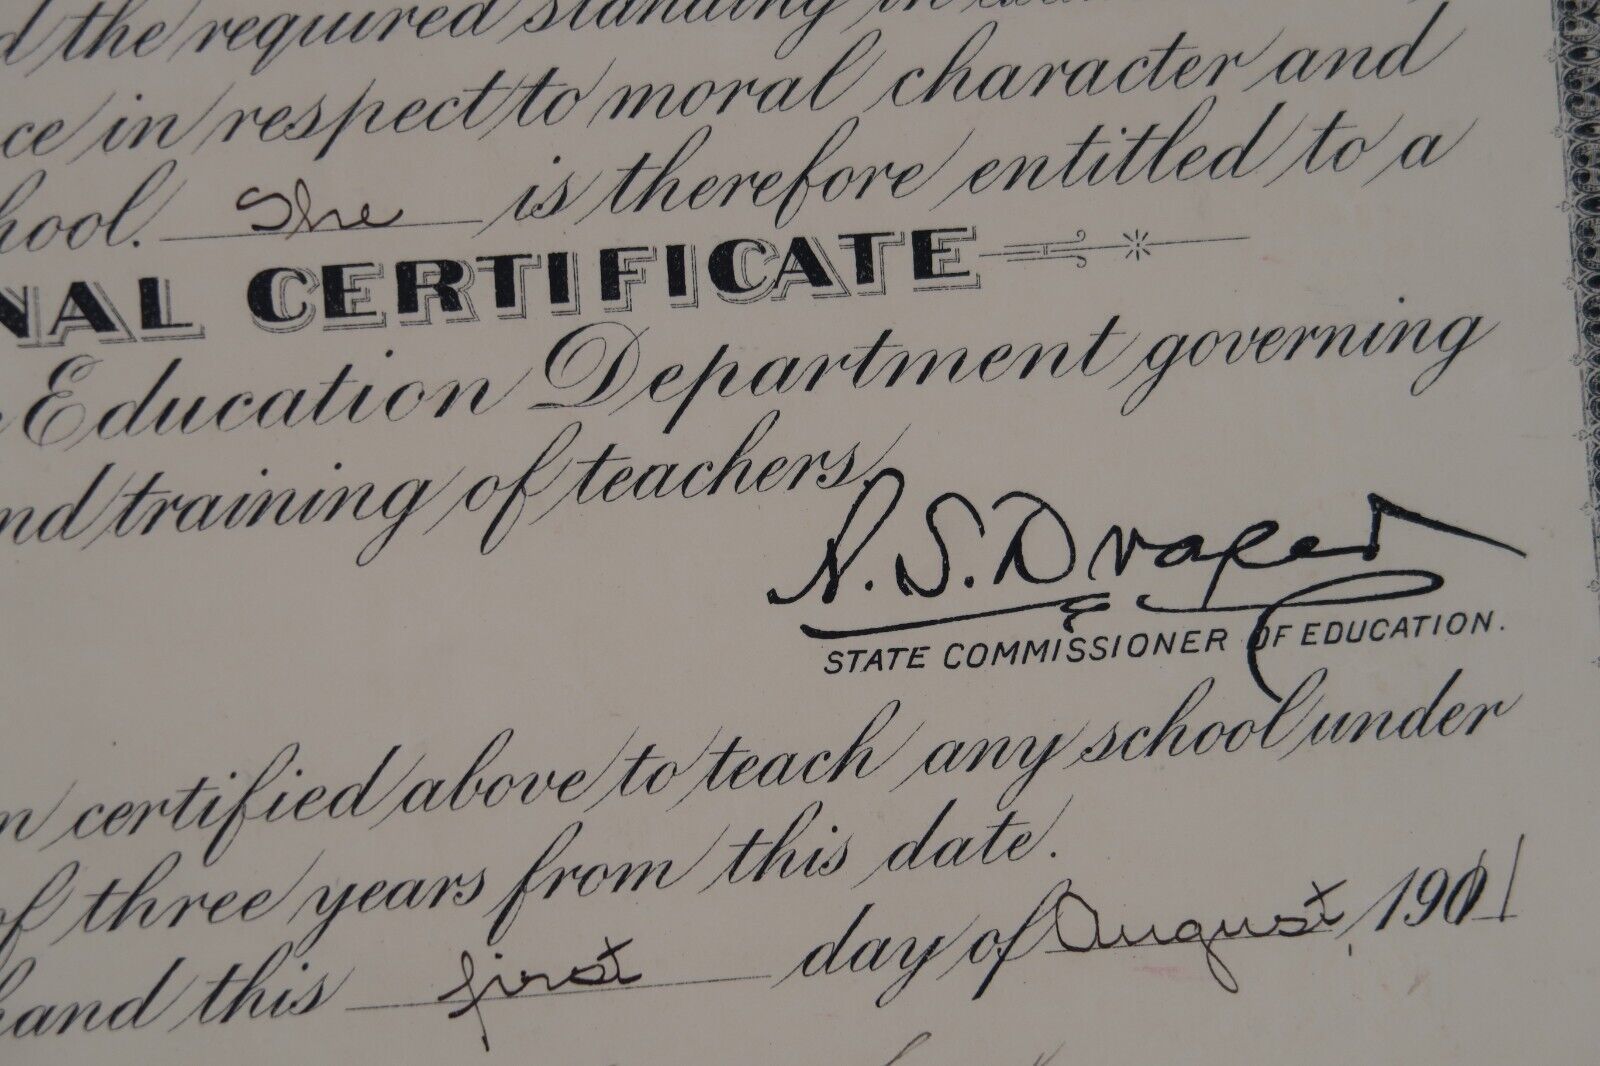 d the required standing in
ce in respect to moral character and
hool. She is therefore entitled to a
NAL CERTIFICATE
Education Department governing
nd training of teachers.
A. S. Draper
STATE COMMISSIONER OF EDUCATION.
n certified above to teach any school under
of three years from this date.
hand this first day of August, 1911